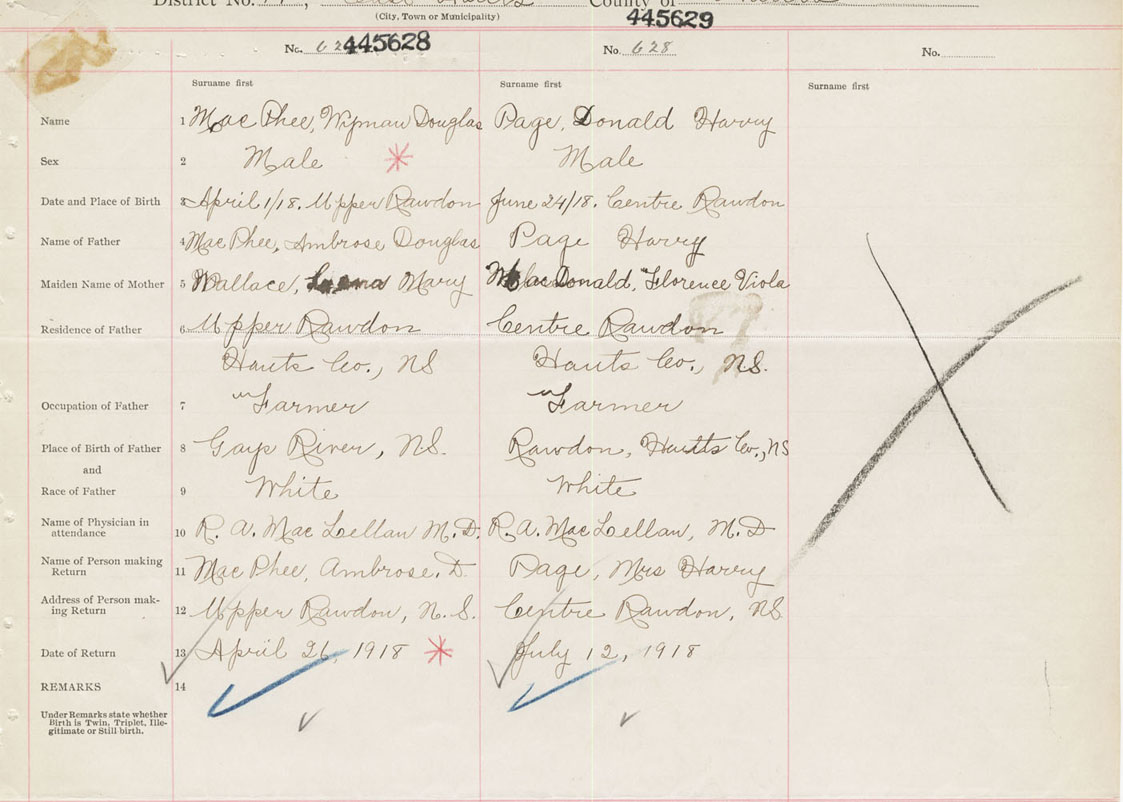 District No. 11, East Hants County of
(City, Town or Municipality)
445629
No. 62 445628 No. 628 No.
Surname first Surname first Surname first
Name 1 MacPhee, Wyman Douglas Page, Donald Harry
Sex 2 Male * Male
Date and Place of Birth 3 April 1/18. Upper Rawdon June 24/18. Centre Rawdon
Name of Father 4 MacPhee, Ambrose Douglas Page Harry
Maiden Name of Mother 5 Wallace, Mary MacDonald, Florence Viola
Residence of Father 6 Upper Rawdon Centre Rawdon
Hants Co., NS Hants Co., NS.
Occupation of Father 7 Farmer Farmer
Place of Birth of Father 8 Gays River, NS. Rawdon, Hants Co., NS
and
Race of Father 9 White White
Name of Physician in
attendance 10 R. A. MacLellan M.D. R. A. MacLellan, M.D
Name of Person making
Return 11 MacPhee, Ambrose. D. Page, Mrs Harry
Address of Person mak-
ing Return 12 Upper Rawdon, N.S. Centre Rawdon, NS
Date of Return 13 April 26, 1918 * July 12, 1918
REMARKS 14
Under Remarks state whether
Birth is Twin, Triplet, Ille-
gitimate or Still birth.